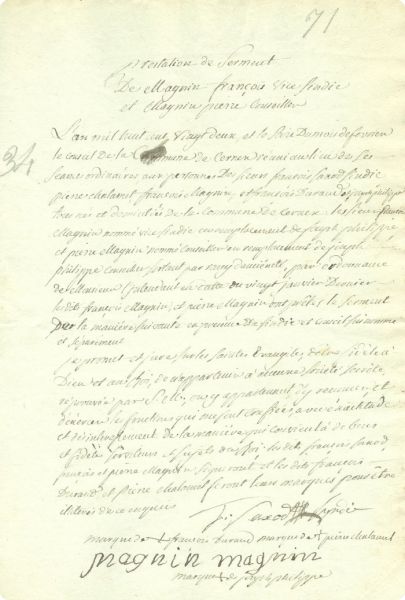 71
34
prestation de Serment
De Magnin françois vice sindic
et Magnin pierre Conseiller
L'an mil huit cent vingt deux et le seize Du mois de fevrier
le conseil de la Commune de Cernex réuni au lieu de ses
seances ordinaires aux personnes Des sieurs françois saxod sindic
pierre chatenat françois Magnin, et françois Durand joseph philippe
tous nés et domiciliés de la Commune de Cernex les sieurs françois
Magnin nommé vice sindic en remplacement de joseph philippe
et pierre Magnin nommé Conseiller en remplacement de joseph
philippe conseiller sortant par rang d'ancienneté, par ordonnance
de Monsieur l'intendant en datte du vingt janvier Dernier
lesdits françois Magnin, et pierre Magnin ont prêté le serment
de la manière suivante en presence du sindic et conseil susnommé
et séparément
je promet et jure sur les saintes Evangiles d'être fidèle à
Dieu et au Roi, de n'appartenir à aucune société secrète
réprouvée par et si j'y appartenais, j'y renonce, et
d'exercer les fonctions qui me sont confiées avec exactitude
et désintéressement de la manière qui convient à de bons
et fidèles serviteurs et sujets du Roi lesdits françois saxod,
françois et pierre Magnin signeront et lesdits françois
Durand et pierre chatenat feront leurs marques pour être
illiterés de ce enquis
f. Saxod sindic
marque de + françois Durand marque de + pierre chatenat
magnin magnin
marque + de joseph philippe